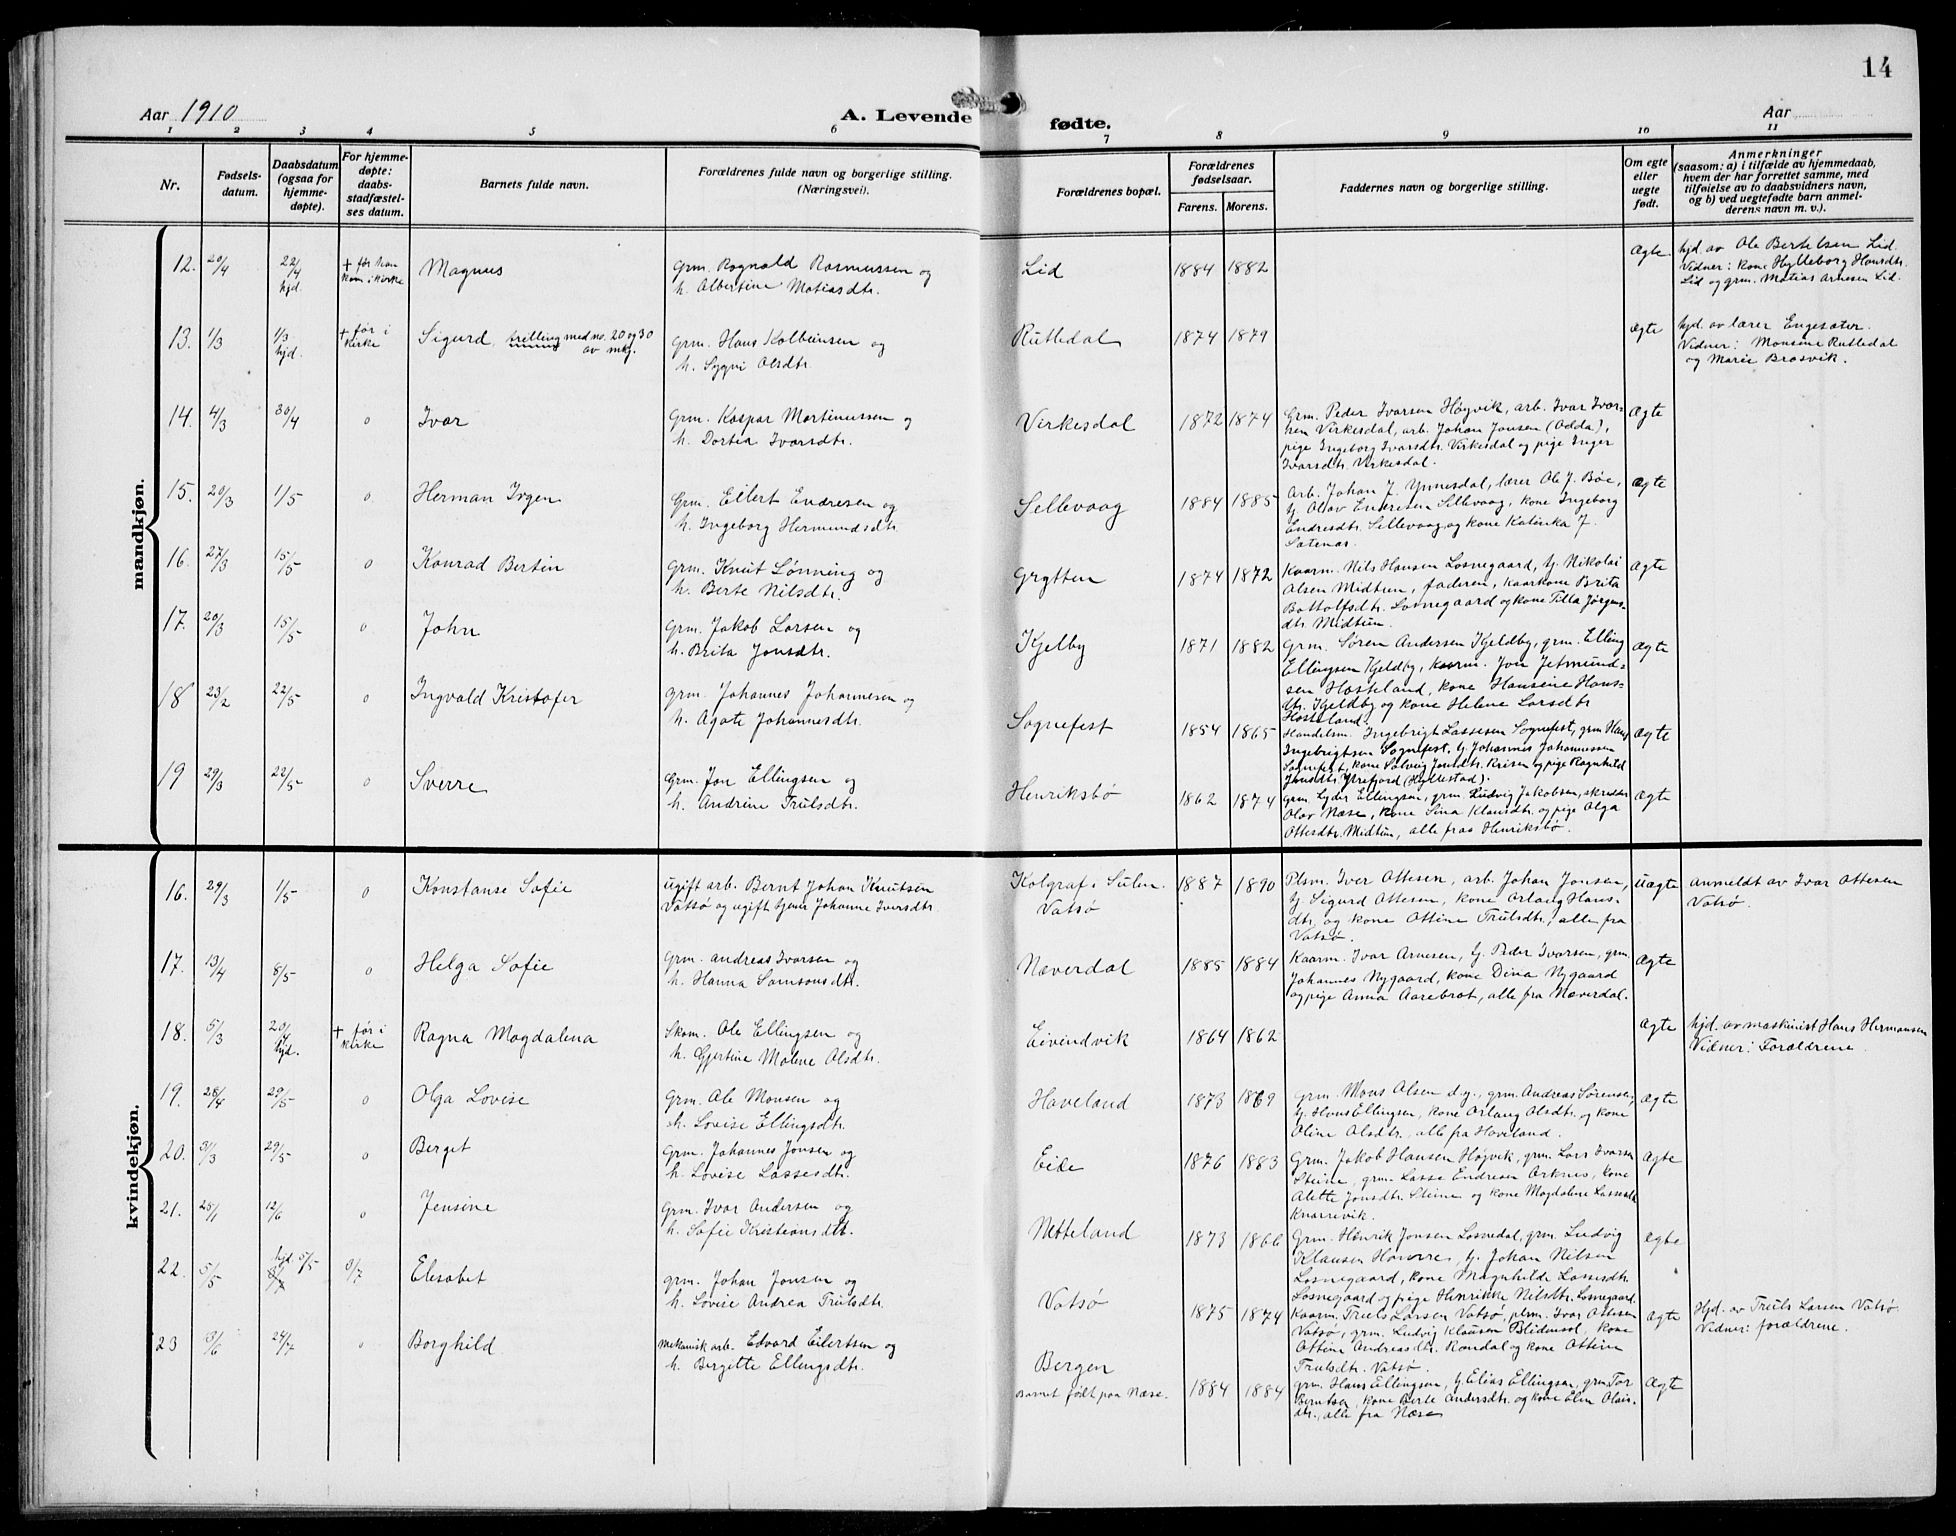 14
Aar 1910
A. Levende fødte.
Aar
1 2 3 4 5 6 7 8 9 10 11
Nr.
Fødsels-
datum.
Daabsdatum
(ogsaa for
hjemme-
døpte).
For hjemme-
døpte:
daabs-
stadfæstel-
ses datum.
Barnets fulde navn.
Forældrenes fulde navn og borgerlige stilling.
(Næringsvei).
Forældrenes bopæl.
Forældrenes
fødselsaar.
Farens. Morens.
Faddernes navn og borgerlige stilling.
Om egte
eller
uegte
født.
Anmerkninger
(saasom: a) i tilfælde av hjemmedaab,
hvem der har forrettet samme, med
tilføielse av to daabsvidners navn,
og b) ved uegtefødte barn anmel-
derens navn m. v.).
mandkjøn.
12. 20/4 22/4 hjd. + før han kom i kirke Magnus
Grm. Rognald Rasmussen og
h. Albertine Matiasdtr.
Lid 1884 1882
Ægte
hjd. av Ole Bertelsen Lid.
Vidner: kone Hylleborg Hansdtr.
Lid og grm. Matias Arnesen Lid.
13. 1/3 1/3 hjd. + før i kirke Sigurd, trilling med no. 20 og 30
av mkj.
Grm. Hans Kolbeinsen og
h. Sygni Olsdtr.
Rutledal 1874 1879
Ægte
hjd. av lærer Engesæter.
Vidner: Monsine Rutledal
og Marie Brosvik.
14. 4/3 30/4 o Ivar
Grm. Kaspar Martinussen og
h. Dortea Ivarsdtr.
Virkesdal 1872 1874
Grm. Peder Ivarsen Høyvik, arb. Ivar Ivar-
sen Virkesdal, arb. Johan Jonsen (Odda),
pige Ingeborg Ivarsdtr. Virkesdal og pige Inger
Ivarsdtr. Virkesdal.
Ægte
15. 20/3 1/5 o Herman Irgen
Grm. Eilert Endresen og
h. Ingeborg Hermundsdtr.
Sellevaag 1884 1885
Arb. Johan J. Ynnesdal, lærer Ole J. Bøe,
tj. Olav Endresen Sellevaag, kone Ingeborg
Endresdtr. Sellevaag og kone Katinka J.
Sætenes.
Ægte
16. 27/3 15/5 o Konrad Bertin
Grm. Knut Lønning og
h. Berte Nilsdtr.
Grytten 1874 1872
Kaarm. Nils Hansen Losnegaard, tj. Nikolai
Olsen Midtun, faderen, kaarkone Brita
Bottolfsdtr. Losnegaard og kone Tilla Jørgens-
dtr. Midtun.
Ægte
17. 20/3 15/5 o John
Grm. Jakob Larsen og
h. Brita Jonsdtr.
Kjelby 1871 1882
Grm. Søren Andersen Kjeldby, grm. Elling
Ellingsen Kjeldby, kaarm. Jon Jetmund-
sen Hosteland, kone Hansine Hans-
dtr. Kjeldby og kone Helene Larsdtr
Hosteland.
Ægte
18 23/2 22/5 o Ingvald Kristofer
Grm. Johannes Johannesen og
h. Agate Johannesdtr.
Sognefest 1854 1865
Handelsm. Ingebrigt Lassesen Sognefest, grm Hans
Ingebrigtsen Sognefest, tj. Johannes Johannessen
Sognefest, kone Solveig Jonsdtr. Risen og pige Ragnhild
Jonsdtr. Ytrefjord (Hyllestad).
Ægte
19 29/3 22/5 o Sverre
Grm. Jon Ellingsen og
h. Andrine Trulsdtr.
Henriksbø 1862 1874
Grm. Lyder Ellingsen, grm. Ludvig Jakobsen, skrædder
Olav Næse, kone Sina Klausdtr. og pige Olga
Ottesdtr. Midtun, alle fraa Henriksbø.
Ægte
kvindekjøn.
16. 29/3 1/5 o Konstanse Sofie
ugift arb. Bernt Johan Knutsen
Vatsø og ugift tjener Johanne Iversdtr.
Kolgraf i Sulen
Vatsø 1887 1890
Plsm. Iver Ottesen, arb. Johan Jonsen,
tj. Sigurd Ottesen, kone Orlaug Hans-
dtr. og kone Ottine Trulsdtr., alle fra
Vatsø.
Uægte
anmeldt av Ivar Ottesen
Vatsø.
17. 13/4 8/5 o Helga Sofie
Grm. Andreas Ivarsen og
h. Hanna Samsonsdtr.
Næverdal 1885 1884
Kaarm. Ivar Arnesen, tj. Peder Ivarsen, grm.
Johannes Nygaard, kone Dina Nygaard
og pige Anna Aarebrot, alle fra Næverdal.
Ægte
18. 5/3 20/4 hjd. + før i kirke Ragna Magdalena
Skom. Ole Ellingsen og
h. Gjertine Malene Olsdtr.
Eivindvik 1864 1862
Ægte
hjd. av maskinist Hans Hermansen
Vidner: Forældrene.
19. 26/4 29/5 o Olga Lovise
Grm. Ole Monsen og
h. Lovise Ellingsdtr.
Haveland 1873 1869
Grm. Mons Olsen d.y., grm. Andreas Sørensen,
tj. Hans Ellingsen, kone Orlaug Olsdtr. og kone
Oline Olsdtr., alle fra Haveland.
Ægte
20. 31/3 29/5 o Berget
Grm. Johannes Jonsen og
h. Lovise Lassesdtr.
Eide 1876 1883
Grm. Jakob Hansen Høyvik, grm. Lars Ivarsen
Steine, grm. Lasse Endresen Arknes, kone
Alette Jonsdtr. Steine og kone Magdalene Lassesdtr
Knarrevik.
Ægte
21. 25/1 12/6 o Jensine
Grm. Ivar Andersen og
h. Sofie Kristiansdtr.
Nætteland 1873 1866
Grm. Henrik Jonsen Losnedal, grm. Ludvig
Klausen Haverre, tj. Johan Nilsen
Losnegaard, kone Magnhilde Lassesdtr.
Losnegaard og pige Henrikke Nilsdtr. Losnegaard.
Ægte
22. 5/5 hjd. 5/5 3/7 Elisabet
grm. Johan Jonsen og
h. Lovise Andrea Trulsdtr.
Vatsø 1875 1874
Kaarm. Truls Larsen Vatsø, plsm. Ivar Ottesen
Vatsø, grm. Ludvig Klausen Blidensol, kone
Ottine Andreasdtr. Randal og kone Ottine
Trulsdtr. Vatsø.
Ægte
Hjd. av Truls Larsen Vatsø.
Vidner: forældrene.
23 3/6 24/7 o Borghild
Mekanisk arb. Edvard Eilertsen og
h. Bergitte Ellingsdtr.
Bergen
barnet født paa Næse. 1884 1884
Grm. Hans Ellingsen, tj. Elias Ellingsen, grm. Tor
Berntsen, kone Berte Andersdtr. og kone Elen Olai-
dtr., alle fra Næse
Ægte